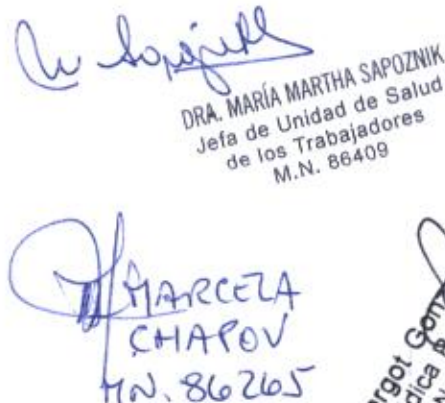 DRA. MARÍA MARTHA SAPOZNIK
Jefa de Unidad de Salud
de los Trabajadores
M.N. 86409
MARCELA
CHAPOV
MN. 86265